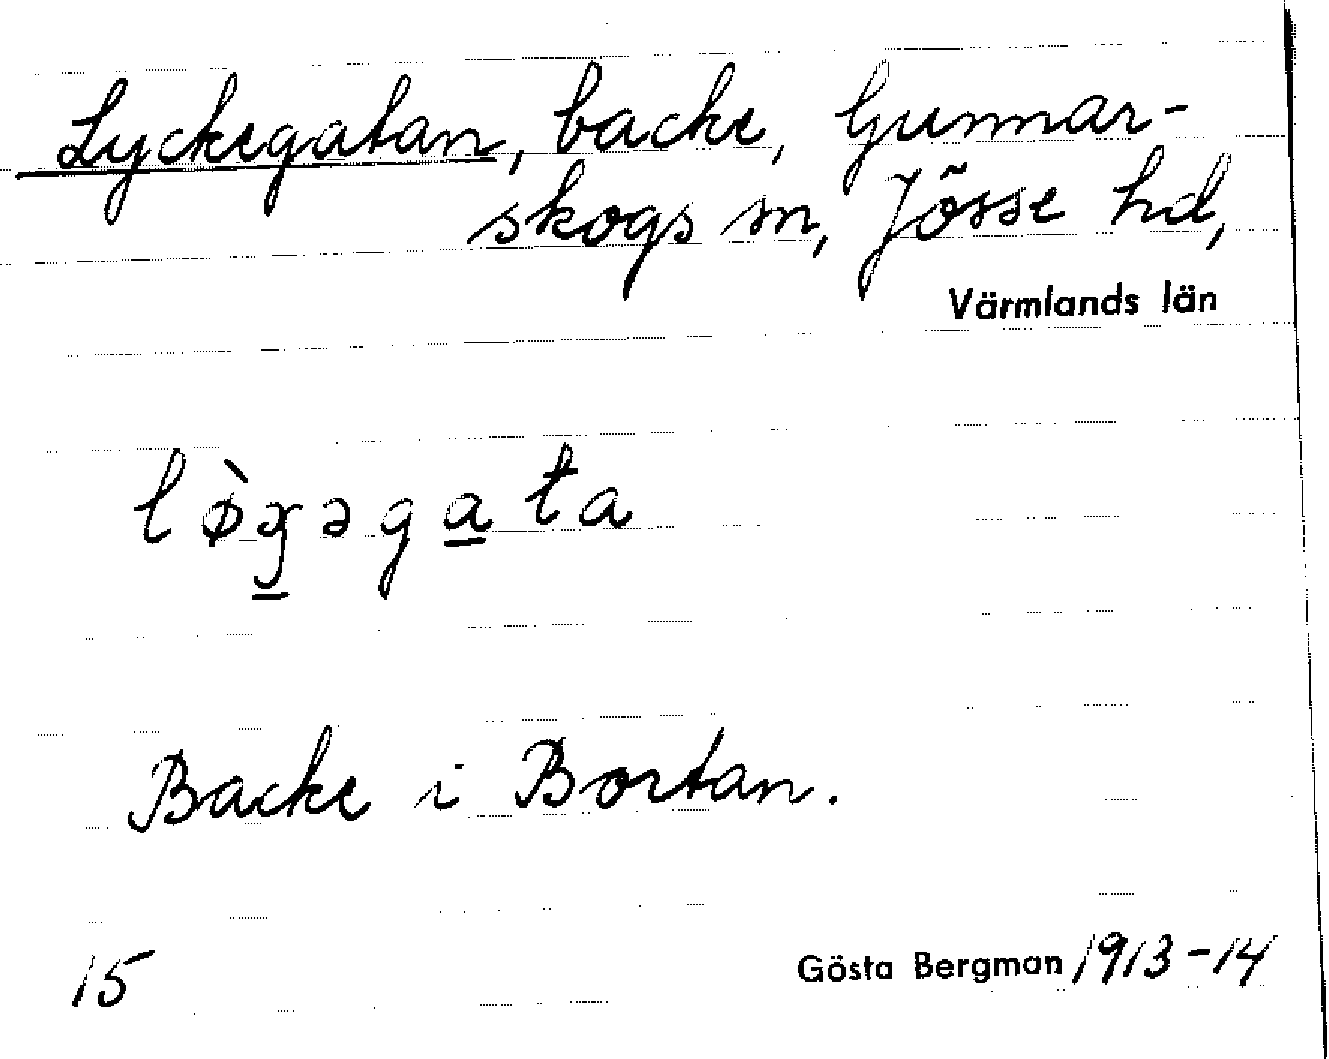 Lyckegatan, backe, Gunnar-
skogs sn, Jösse hd,
Värmlands län
lø̀ɣ̱əga̱ta
Backe i Bortan.
15 Gösta Bergman 1913-14